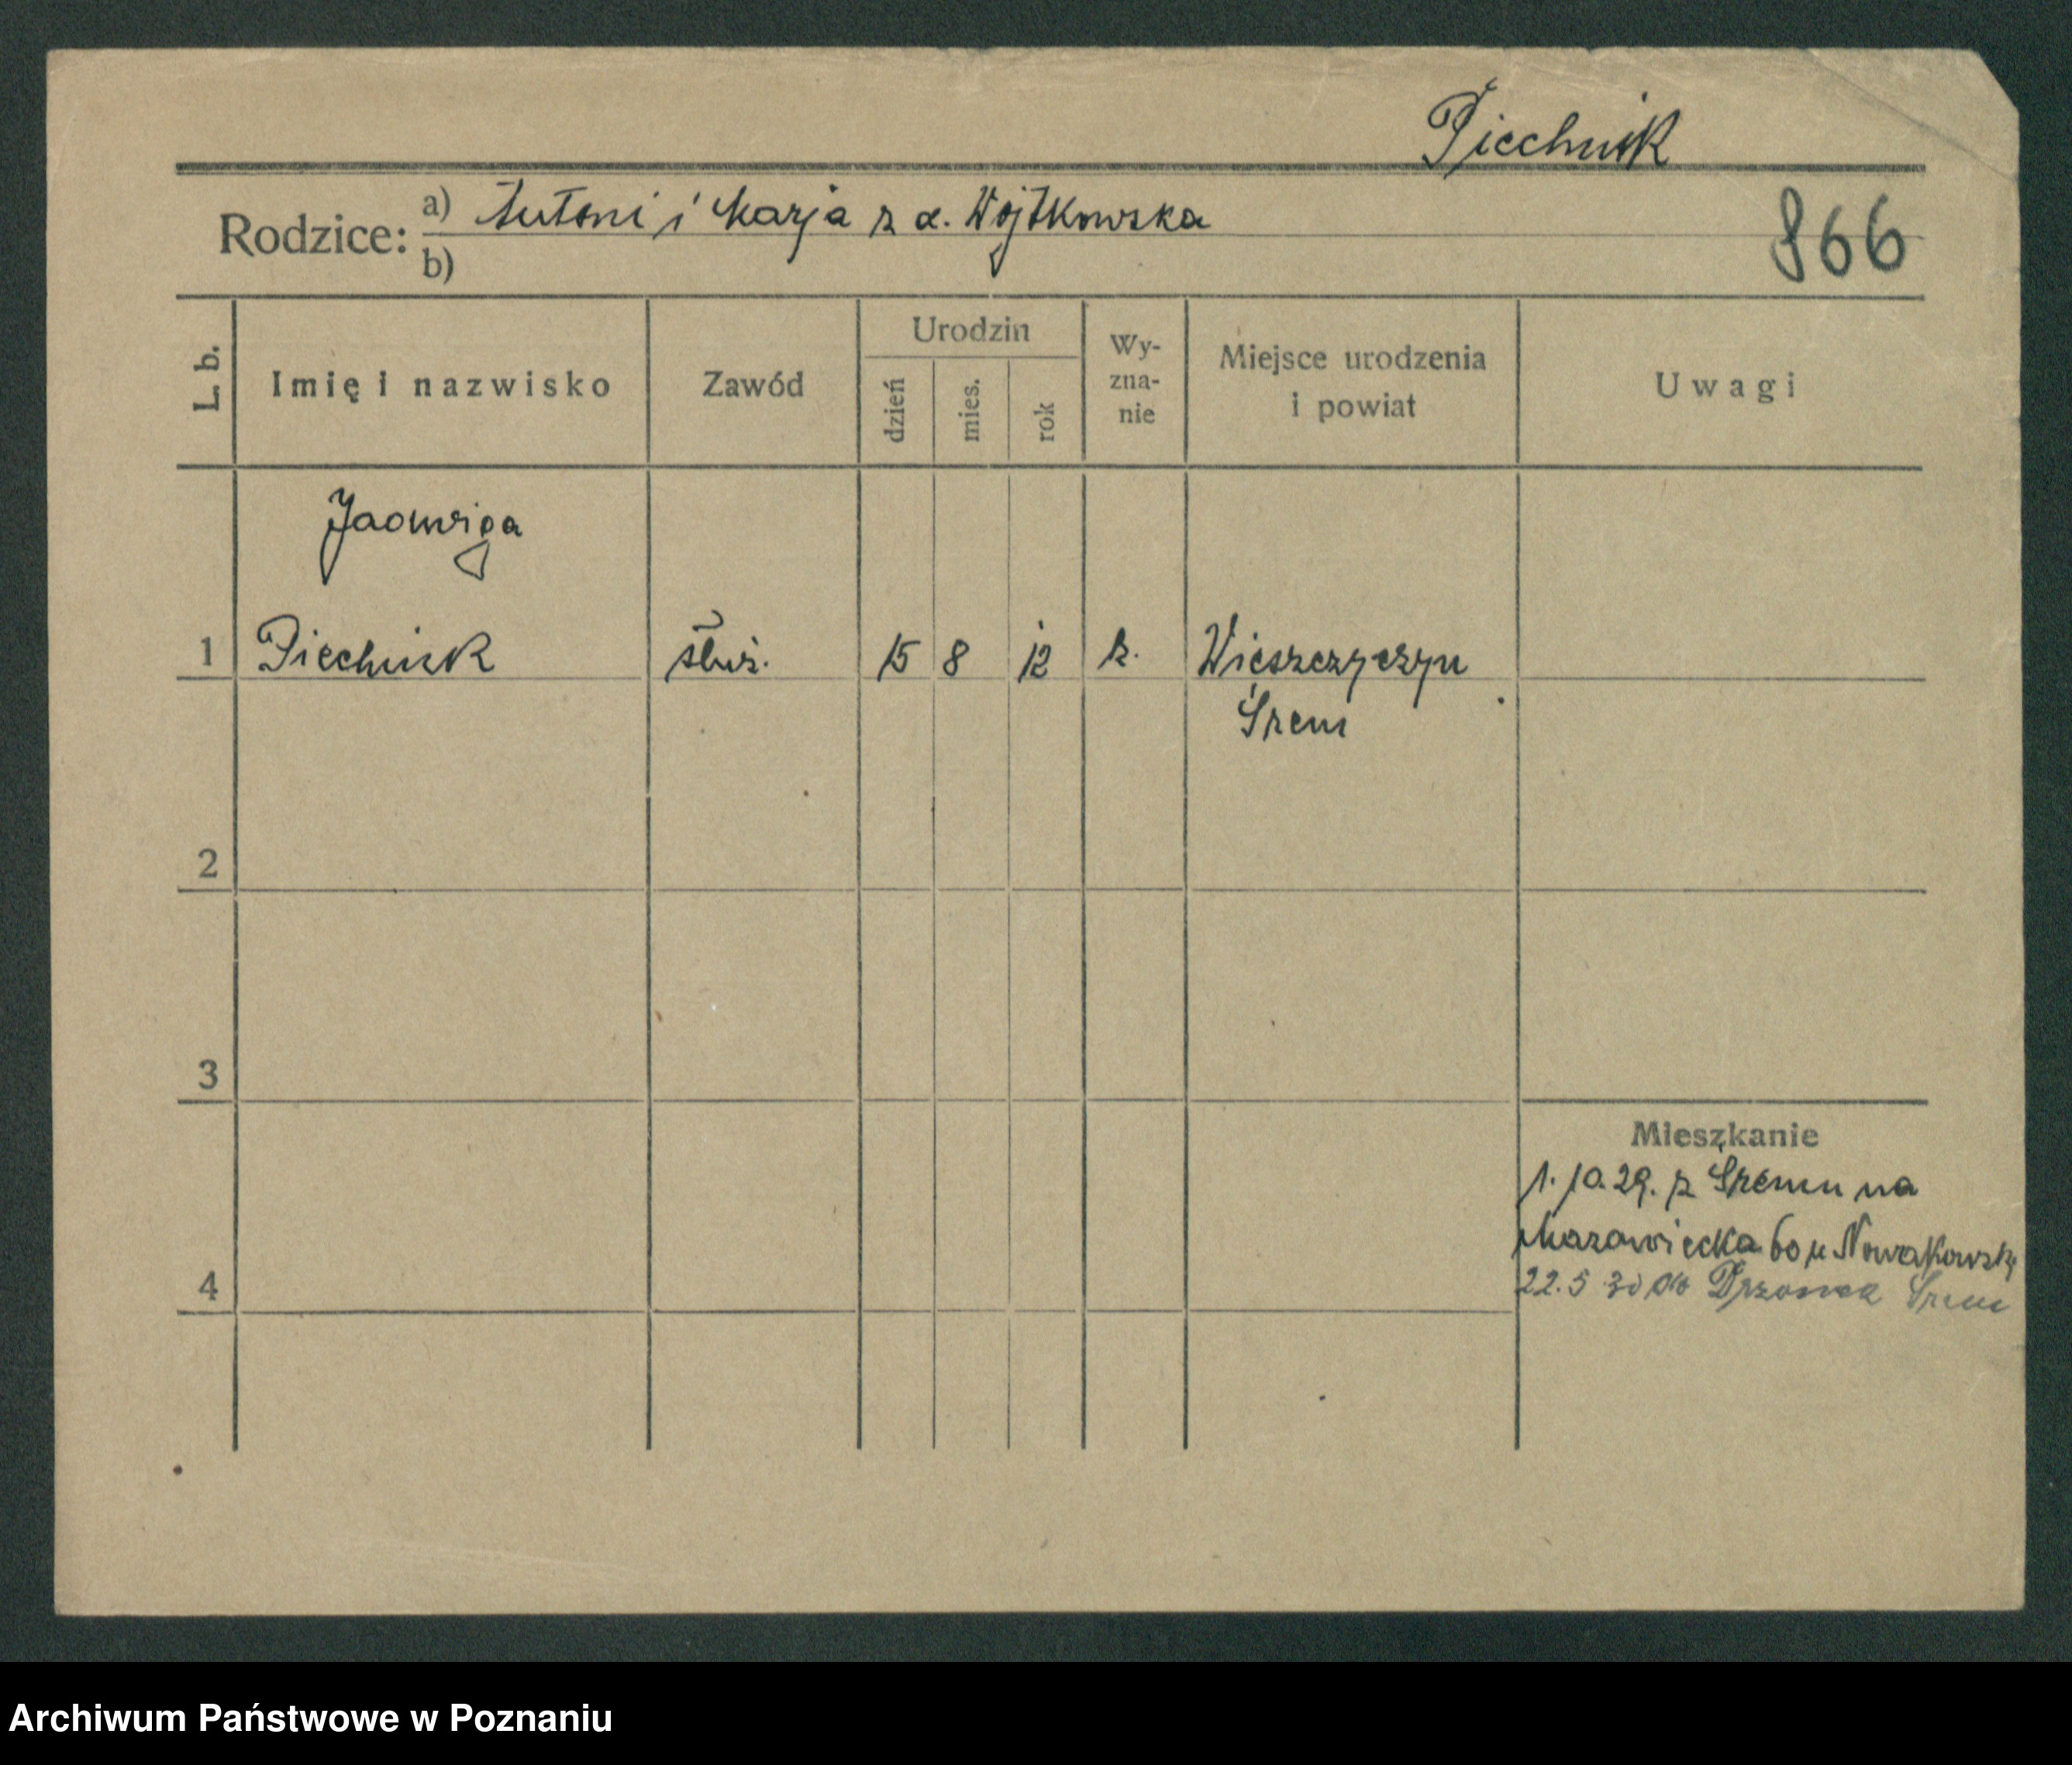 Piechnik
Rodzice: a) Antoni i Marja z d. Wojtkowska
b)
866
L. b.
Imię i nazwisko
Zawód
Urodzin
dzień
mies.
rok
Wy-
zna-
nie
Miejsce urodzenia
i powiat
Uwagi
Jadwiga
1 Piechnik służ. 15 8 12 k. Wieszczyczyn
Śrem
2
3
Mieszkanie
1.10.29. z Śremu na
Mazowiecka 60 u Nowakowsk
4
22.5 30 do Drzonek Śrem
Archiwum Państwowe w Poznaniu